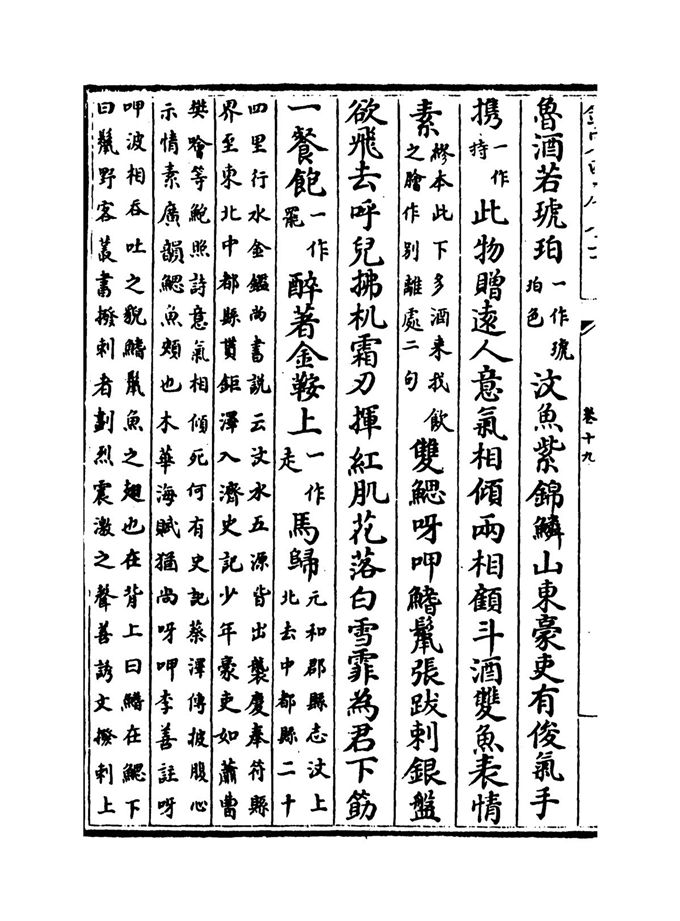 卷十九
魯酒若琥珀一作琥珀色汶魚紫錦鱗山東豪吏有俊氣手
携一作持此物贈遠人意氣相傾兩相顧斗酒雙魚表情
素繆本此下多酒来我飲之膾作别離處二句雙鰓呀呷鰭鬛張跋剌銀盤
欲飛去呼兒拂机霜刃揮紅肌花落白雪霏為君下筯
一餐飽一作罷醉著金鞍上一作走馬歸元和郡縣志汶上
北去中都縣二十
四里行水金鑑尚書説云汶水五源皆出襲慶奉符縣
界至東北中都縣貫鉅澤入濟史記少年豪吏如蕭曹
樊噲等鮑照詩意氣相傾死何有史記蔡澤傳披腹心
示情素廣韻鰓魚頰也木華海賦猶尚呀呷李善註呀
呷波相吞吐之貌鰭鬛魚之翅也在背上曰鰭在鰓下
曰鬛野客叢書撥剌者劃烈震激之聲善誘文撥剌上